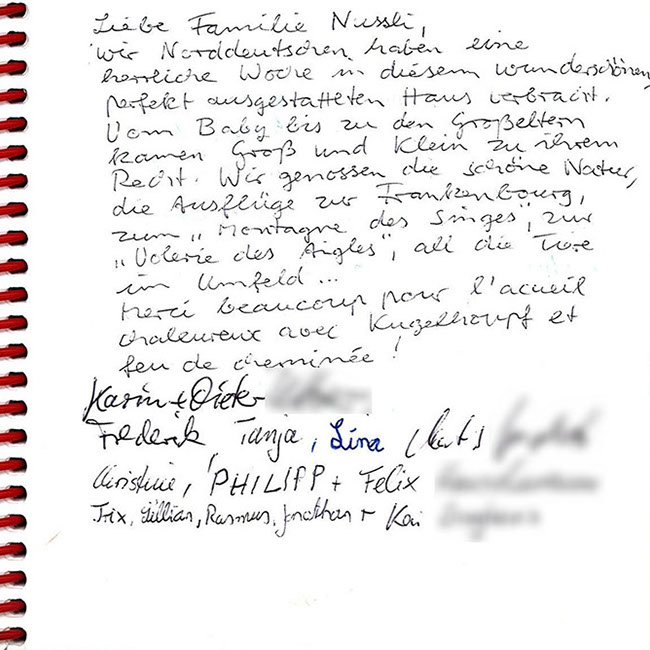 Liebe Familie Nussli,
wir Norddeutschen haben eine
herrliche Woche in diesem wunderschönen,
perfekt ausgestatteten Haus verbracht.
Vom Baby bis zu den Großeltern
kamen Groß und Klein zu ihrem
Recht. Wir genossen die schöne Natur,
die Ausflüge zur Frankenbourg,
zum "Montagne des Singes", zur
"Volerie des Aigles", all die Tiere
im Umfeld...
Merci beaucoup pour l'accueil
chaleureux avec Kugelhoupf et
feu de cheminée!
Karin + Dieter
Frederik Tanja, Lina
Christine, PHILIPP + Felix
Trix, Lillian, Rasmus, Jonathan + Kai